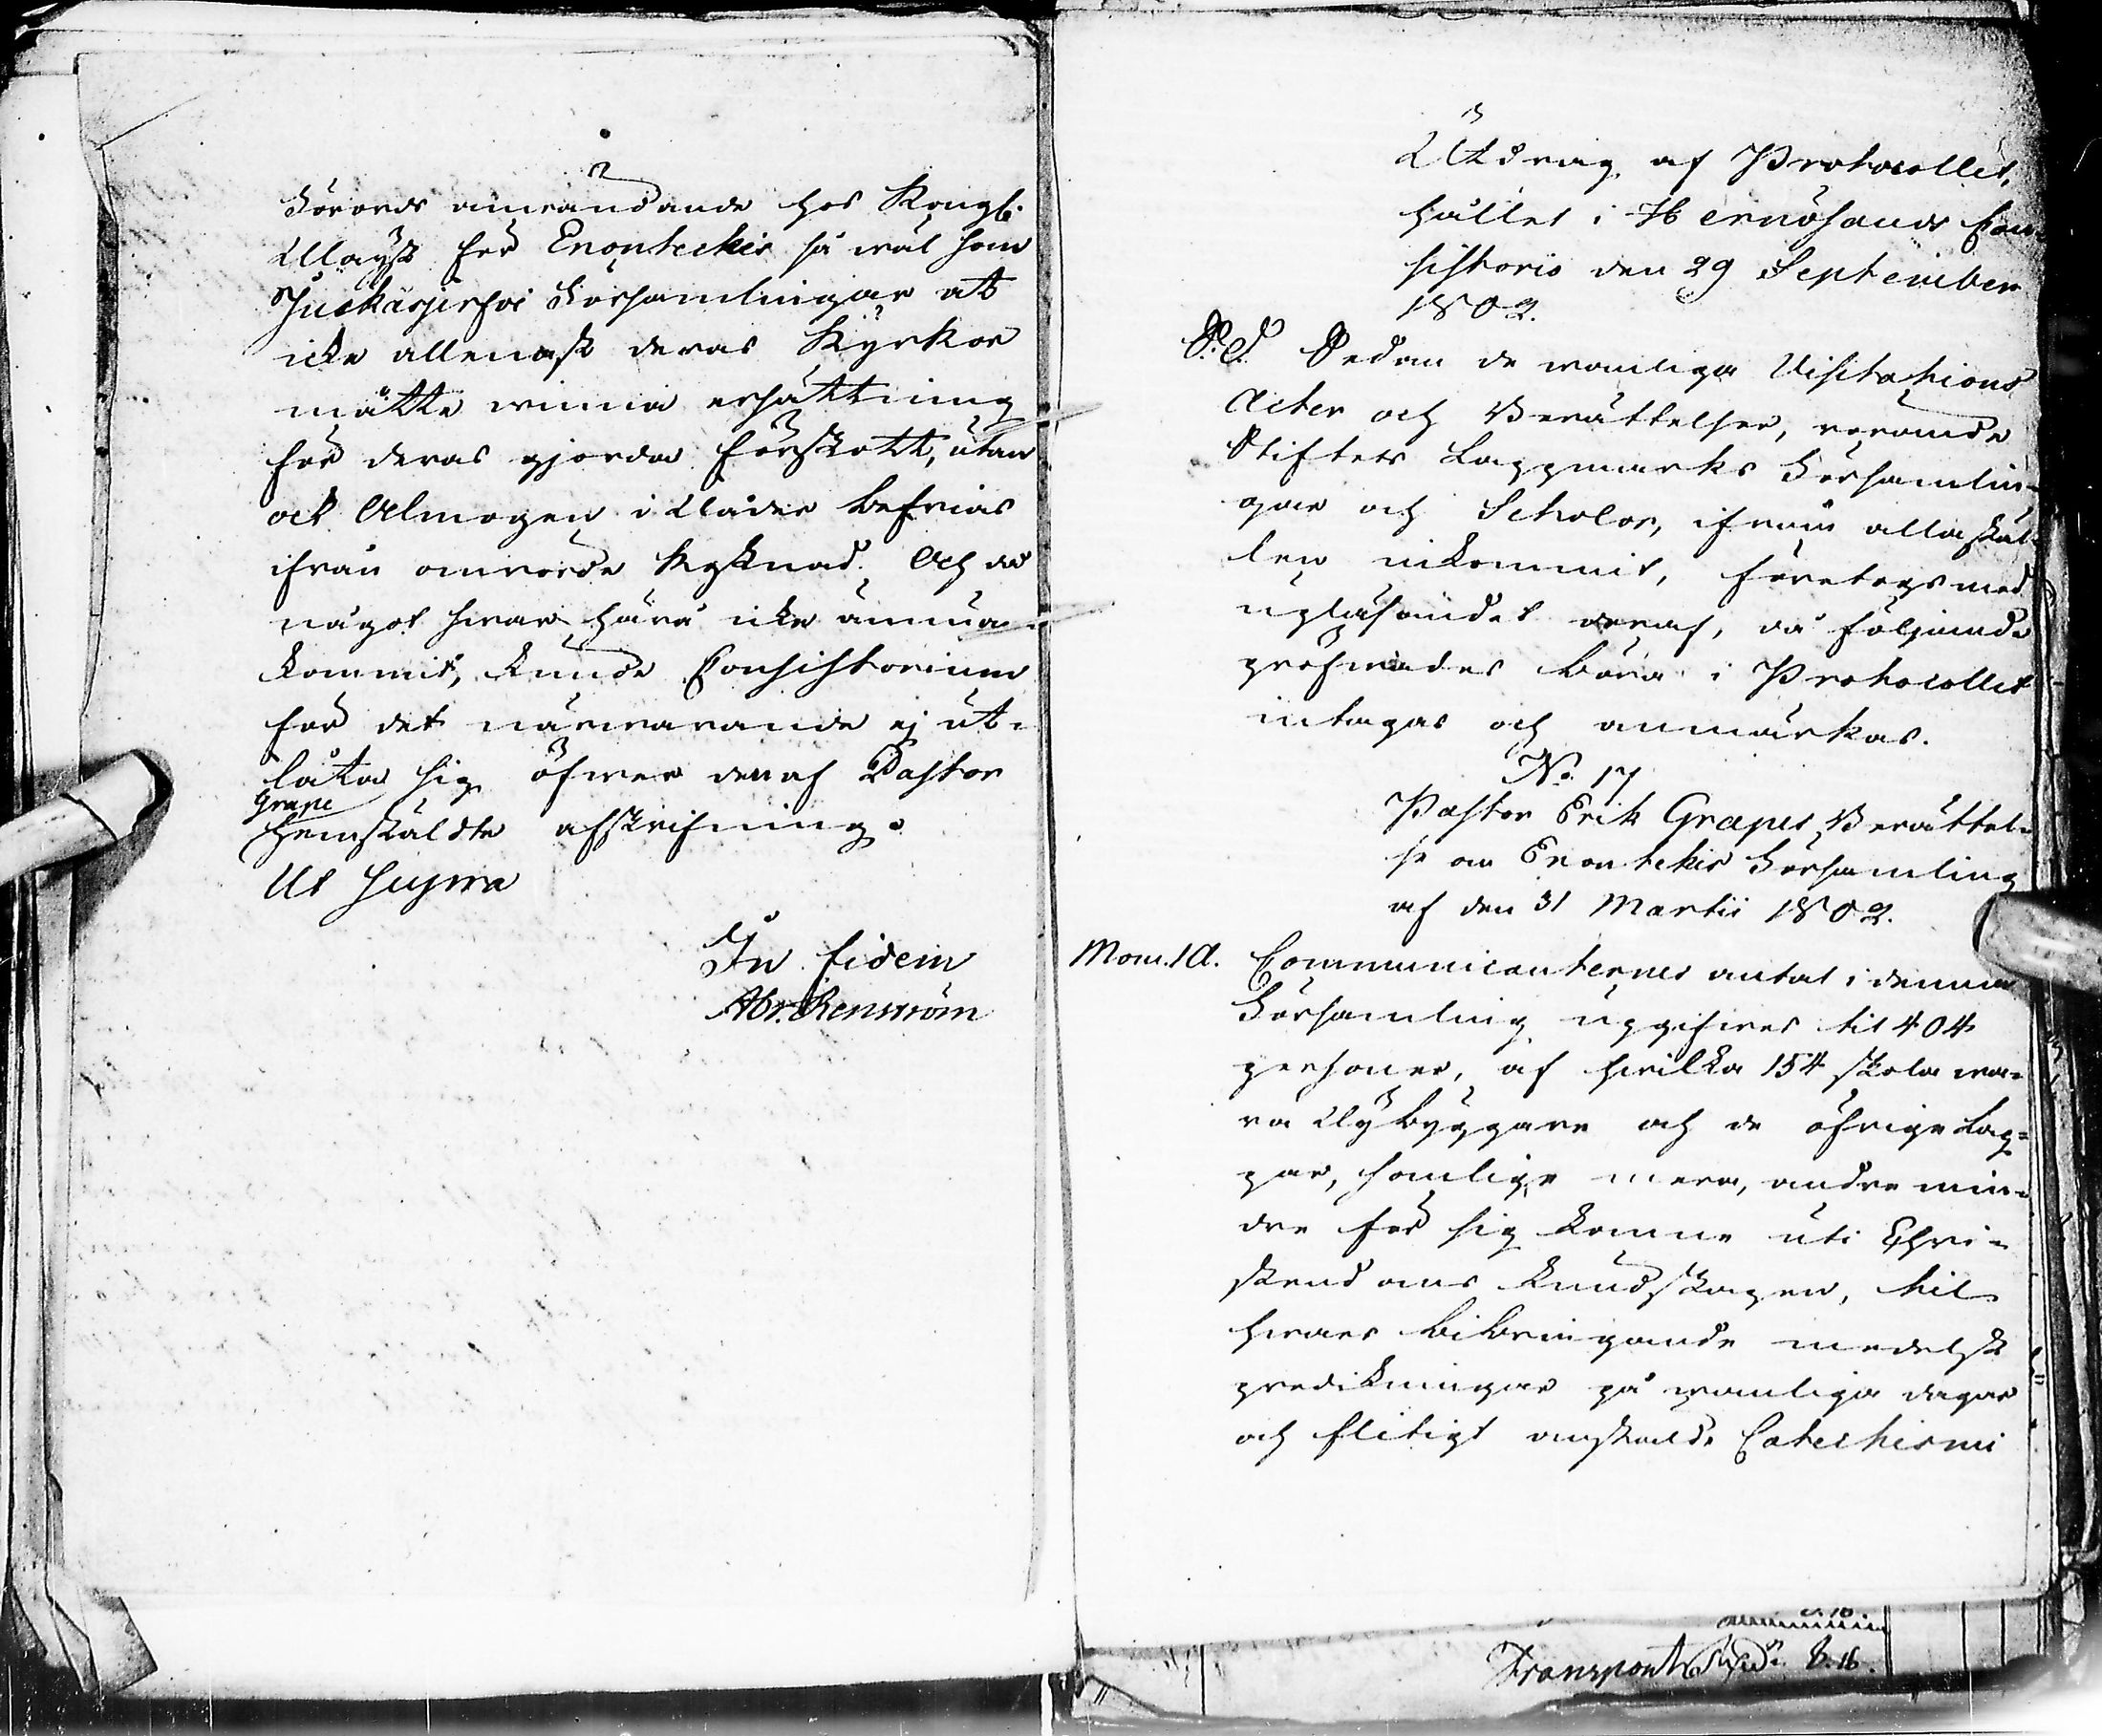 Förords anwändande hos Kongl.
Majst för Enontekis så wäl som
Juckasjerfwi Församlingar at
icke allenast deras Kyrkor
måtte winna ersättning
för deras gjorda förskott, utan
ock Almogen i Nåder befrias
ifrån omrörde kostnad. Och då
något swar härå icke ännu an-
kommit, kunde Consistorium
för det närwarande ej ut-
låta sig öfwer den af Pastor
Grape
hemstälde afskrifning.
Ut supra
In fidem
Abr. Renström
Utdrag af Protocollet,
hållet i Hernösands Con-
sistorio den 29 September
1802.
S. D. Sedan de wanliga Visitations
Acter och Berättelser, rörande
Stiftets Lappmarks Församlin-
gar och Scholor, ifrån alla stäl-
len inkommit, företogs med
upläsandet deraf, då följande
pröfwades böra i Protocollet
intagas och anmärkas.
No. 17
Pastor Erik Grapes Berättel-
se om Enontekis Församling
af den 31 Martii 1802.
Mom. 1 A. Communicanternes antal i denna
Församling uppgifwes til 404
personer, af hwilka 154 skola wa-
ra Nybyggare och de öfrige Lap-
par, somlige mera, andre min-
dre för sig komne uti Chri-
stendoms kundskapen, til
hwars bibringande medelst
predikningar på wanliga dagar
och flitigt anstälde Catechismi
Transport 8.16.